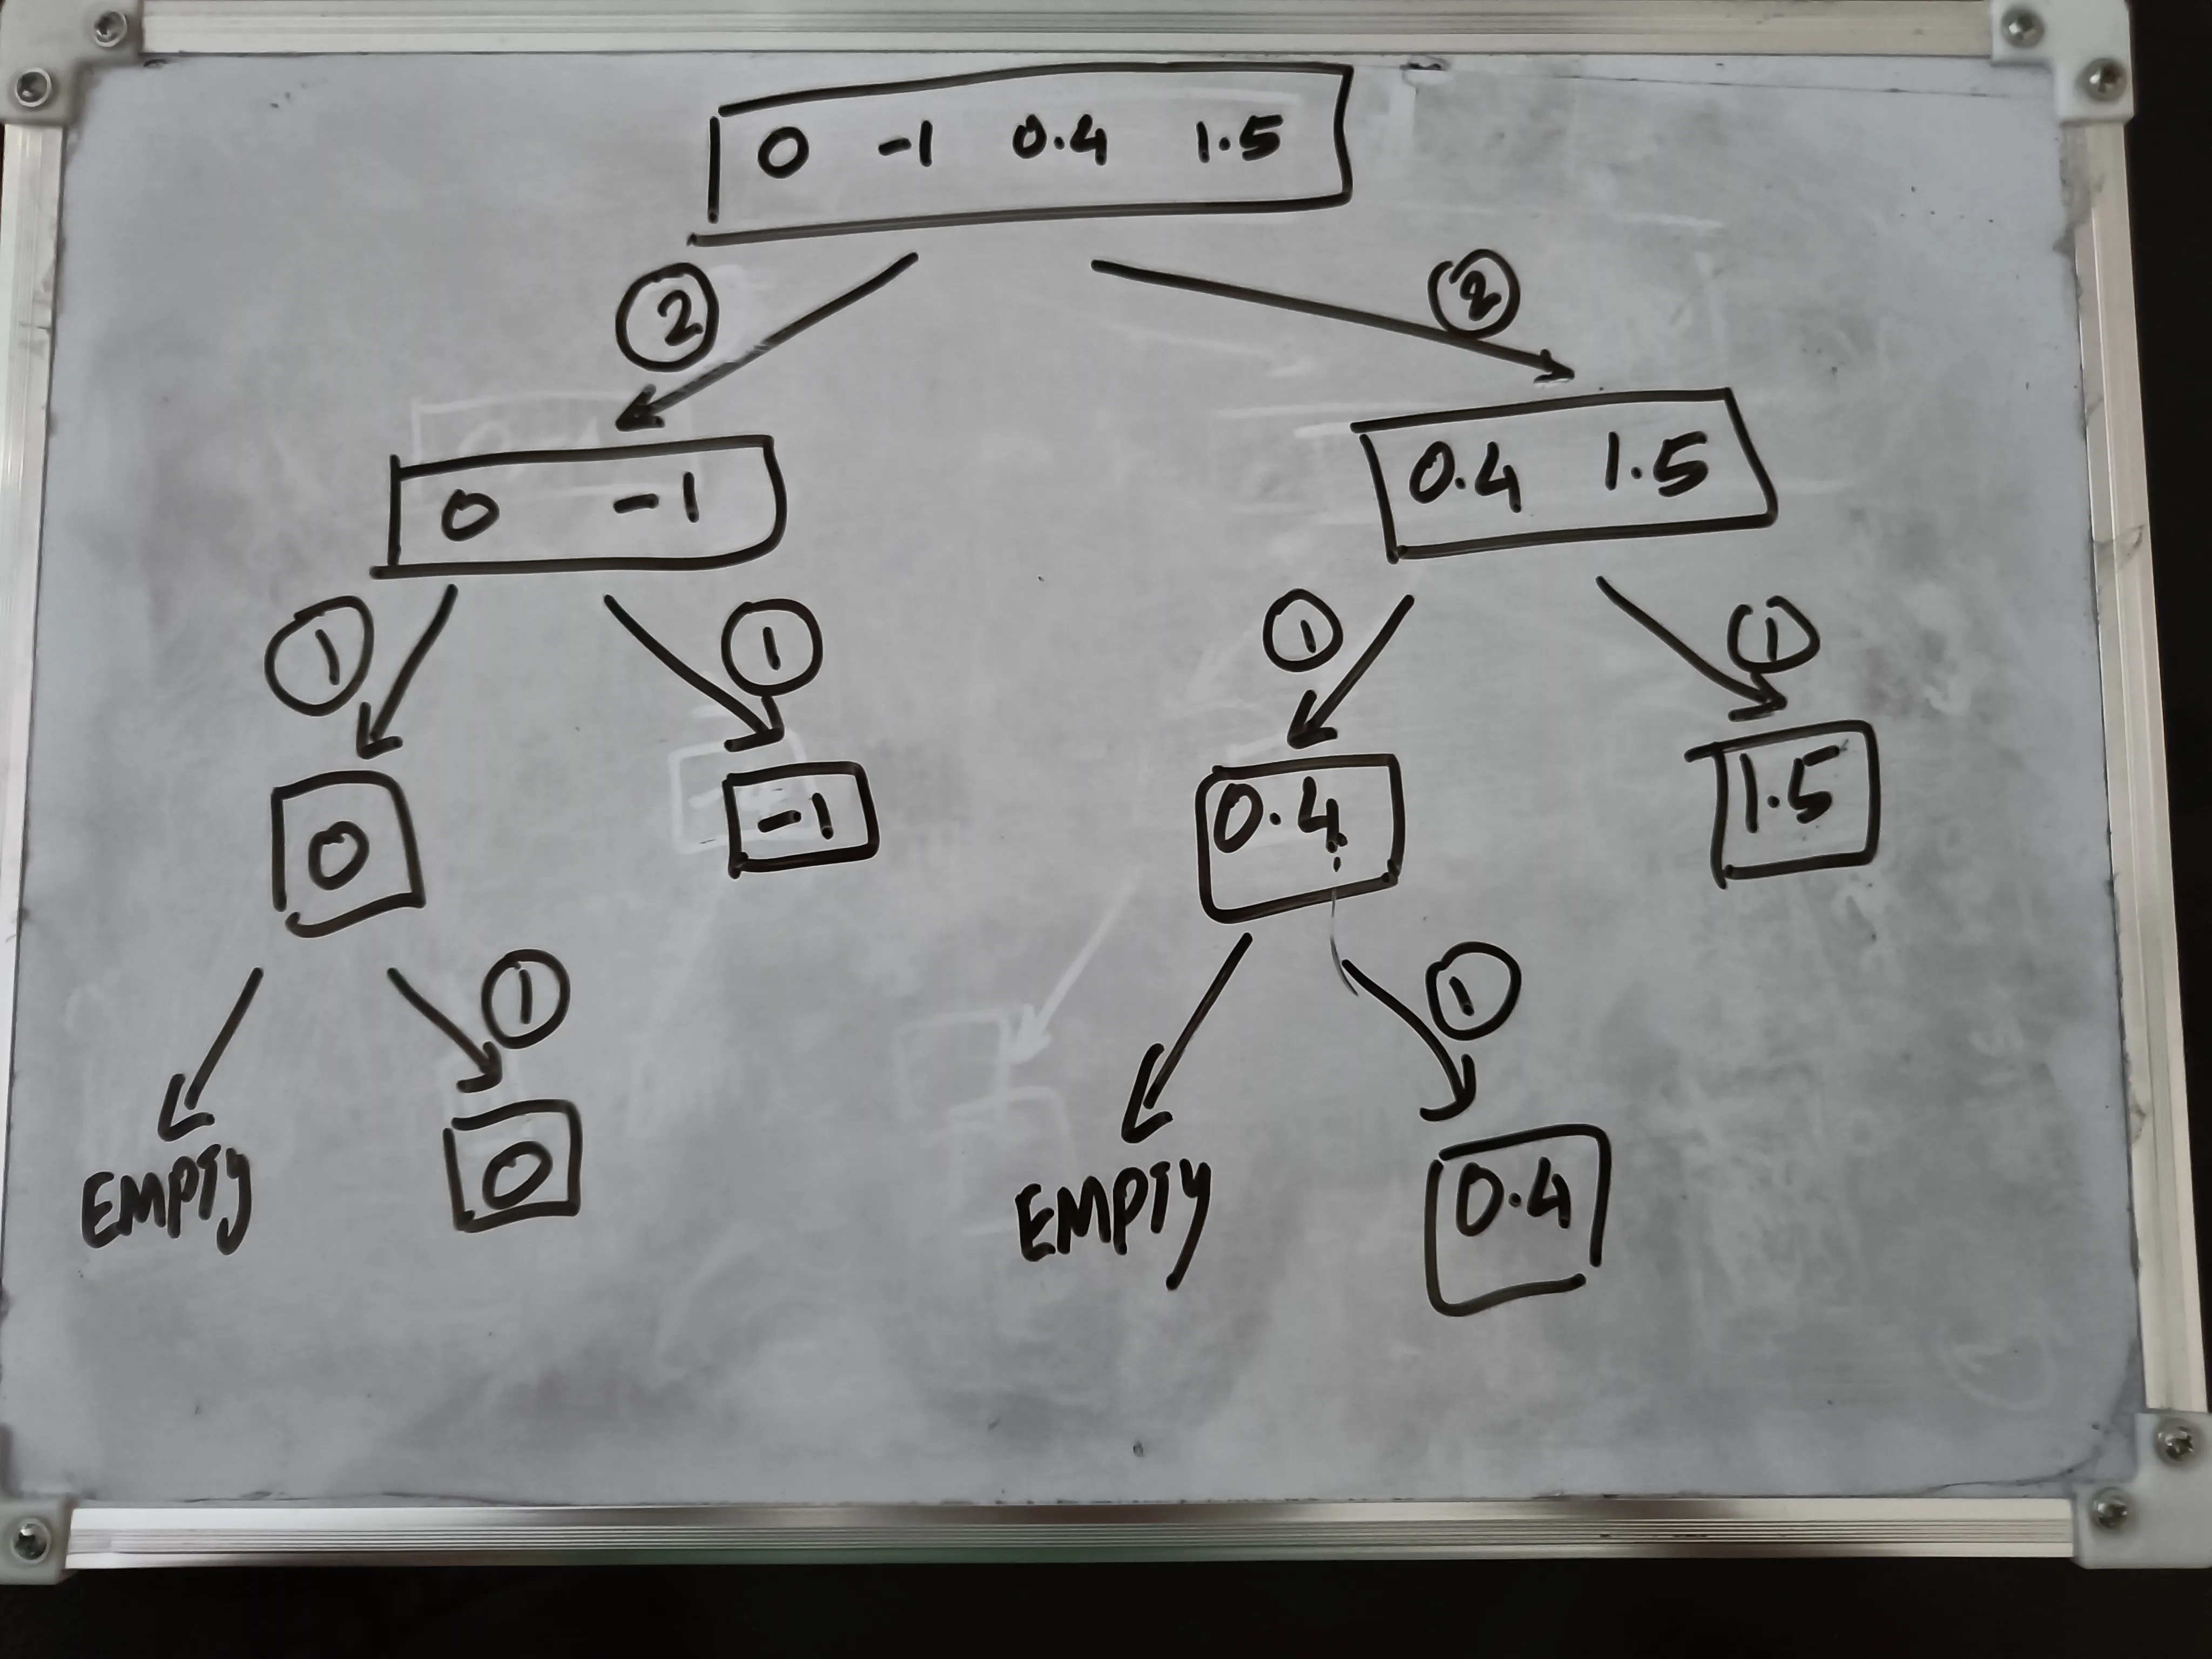 0 -1 0.4 1.5
2 2
0 -1 0.4 1.5
1 1 1 1
0 -1 0.4 1.5
1 1
EMPTY 0 EMPTY 0.4